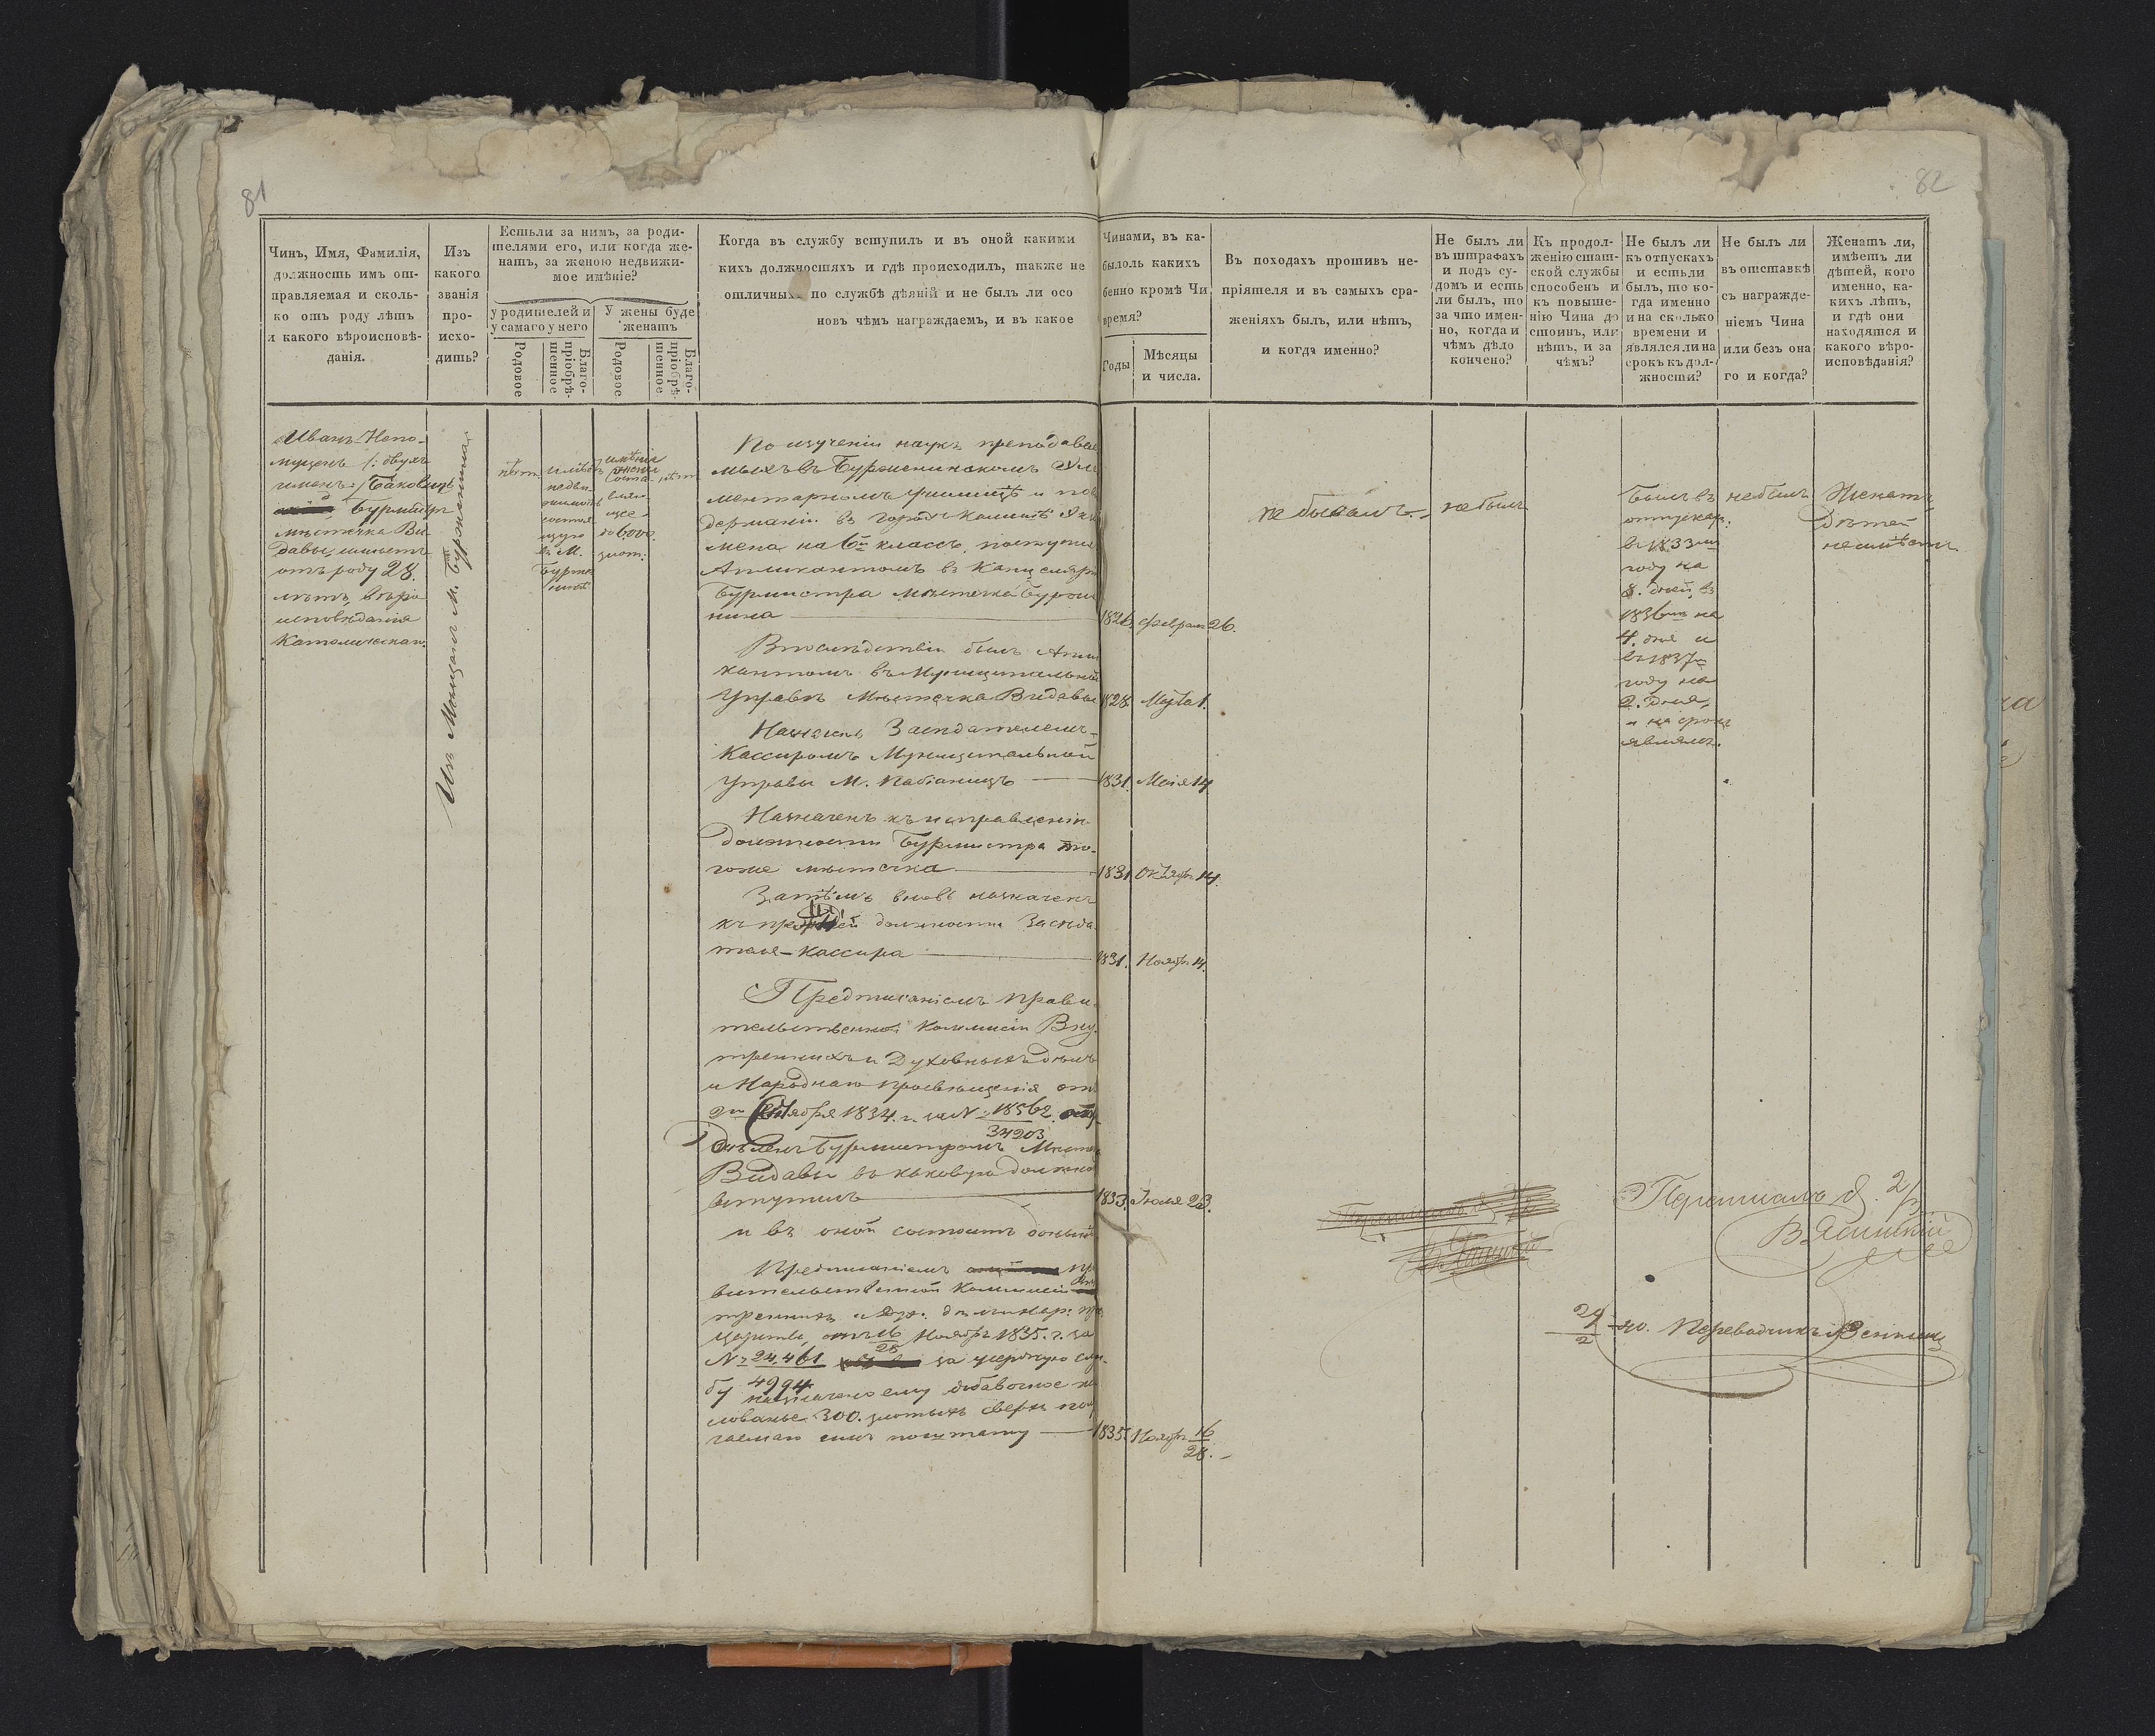 81
82
Чинъ, Имя, Фамилія,
должность имъ от-
правляемая и сколь-
ко отъ роду лѣтъ
и какого вѣроисповѣ-
данія.
Изъ
какого
званія
про-
исхо-
дитъ?
Естьли за нимъ, за роди-
телями его, или когда же-
натъ, за женою недвижи-
мое имѣніе?
у родителей и
у самаго у него
У жены буде
женатъ
Родовое
Благо-
пріобрѣ-
тенное
Родовое
Благо-
пріобрѣ-
тенное
Когда въ службу вступилъ и въ оной какими
кихъ должностяхъ и гдѣ происходилъ, также не
отличныхъ по службѣ дѣяній и не былъ ли осо
новъ чѣмъ награждаемъ, и въ какое
Чинами, въ ка-
былоль какихъ
бенно кромѣ Чи
время?
Годы
Мѣсяцы
и числа.
Въ походахъ противъ не-
пріятеля и въ самыхъ сра-
женіяхъ былъ, или нѣтъ,
и когда именно?
Не былъ ли
въ штрафахъ
и подъ су-
домъ и есть
ли былъ, то
за что имен-
но, когда и
чѣмъ дѣло
кончено?
Къ продол-
женію стат-
ской службы
способенъ и
къ повыше-
нію Чина до
стоинъ, или
нѣтъ, и за
чѣмъ?
Не былъ ли
къ отпускахъ
и естьли
былъ, то ко-
гда именно
и на сколько
времени и
являлся ли на
срокъ къ дол-
жности?
Не былъ ли
въ отставкѣ
съ награжде-
ніемъ Чина
или безъ она
го и когда?
Женатъ ли,
имѣетъ ли
дѣтей, кого
именно, ка-
кихъ лѣтъ,
и гдѣ они
находятся и
какого вѣро-
исповѣданія?
Иванъ-Непо-
муценъ /: двухъ
именъ :/ Баковицъ
Бурмистръ
мѣстечка Ви-
давы, имѣетъ
отъ роду 28.
лѣтъ, вѣро
исповѣданія
Католическаго.
Изъ Мѣщанъ М.
нѣтъ
имѣетъ
недви-
жимость
состоя-
щую
въ М.
имѣніе
жены
соста-
вляю-
щее
до 6000.
злот.
нѣтъ
По изученіи наукъ преподавае
мыхъ въ Бурженинскомъ Эле
ментарномъ училищѣ и
держаніи въ городѣ Калишѣ Экза
мена на 6й классъ, поступилъ
Аппликантомъ въ Канцелярію
Бурмистра мѣстечка Бурже
нина
1826. Февраля 26.
Впослѣдствіи былъ Аппли
кантомъ въ Муниципальной
Управѣ Мѣстечка Видавы
1828. Марта 1.
Назначенъ Засѣдателемъ-
Кассиромъ Муниципальной
Управы М. Пабіаницъ
1831. Маія 14
Назначенъ къ исправленію
должности Бурмистра то-
гоже мѣстечка
1831. Октября 14.
Затѣмъ вновь назначенъ
къ прежней должности Засѣда-
теля-Кассира
1831. Ноября 14.
Предписаніемъ Прави-
тельственной Коммисіи Вну-
треннихъ и Духовныхъ дѣлъ
и Народнаго Просвѣщенія отъ
Октября 1834. г. за № 18562
34203
опредѣленъ Бурмистромъ Мѣстечка
Видавы въ каковую должность
вступилъ
1833. Іюля 23.
и въ оной состоитъ донынѣ
Предписаніемъ Пра
вительственной Коммисіи Вну
треннихъ и Дух. дѣлъ и Нар. Про
отъ 16/28 Ноября 1835. г. за
№ 24,461
4994
за усердную служ-
бу назначено ему добавочное жа
лованье 300. злотыхъ сверхъ полу
чаемаго имъ по штату
1835. Ноября 16
28.
не бывалъ.
не былъ
Былъ въ
отпускахъ.
въ 1833мъ
году на
8. дней, въ
1836мъ на
4. дня и
въ 1837мъ
году на
2. дня,
и на срокъ
являлся.
не былъ
Женатъ,
Дѣтей
не имѣетъ.